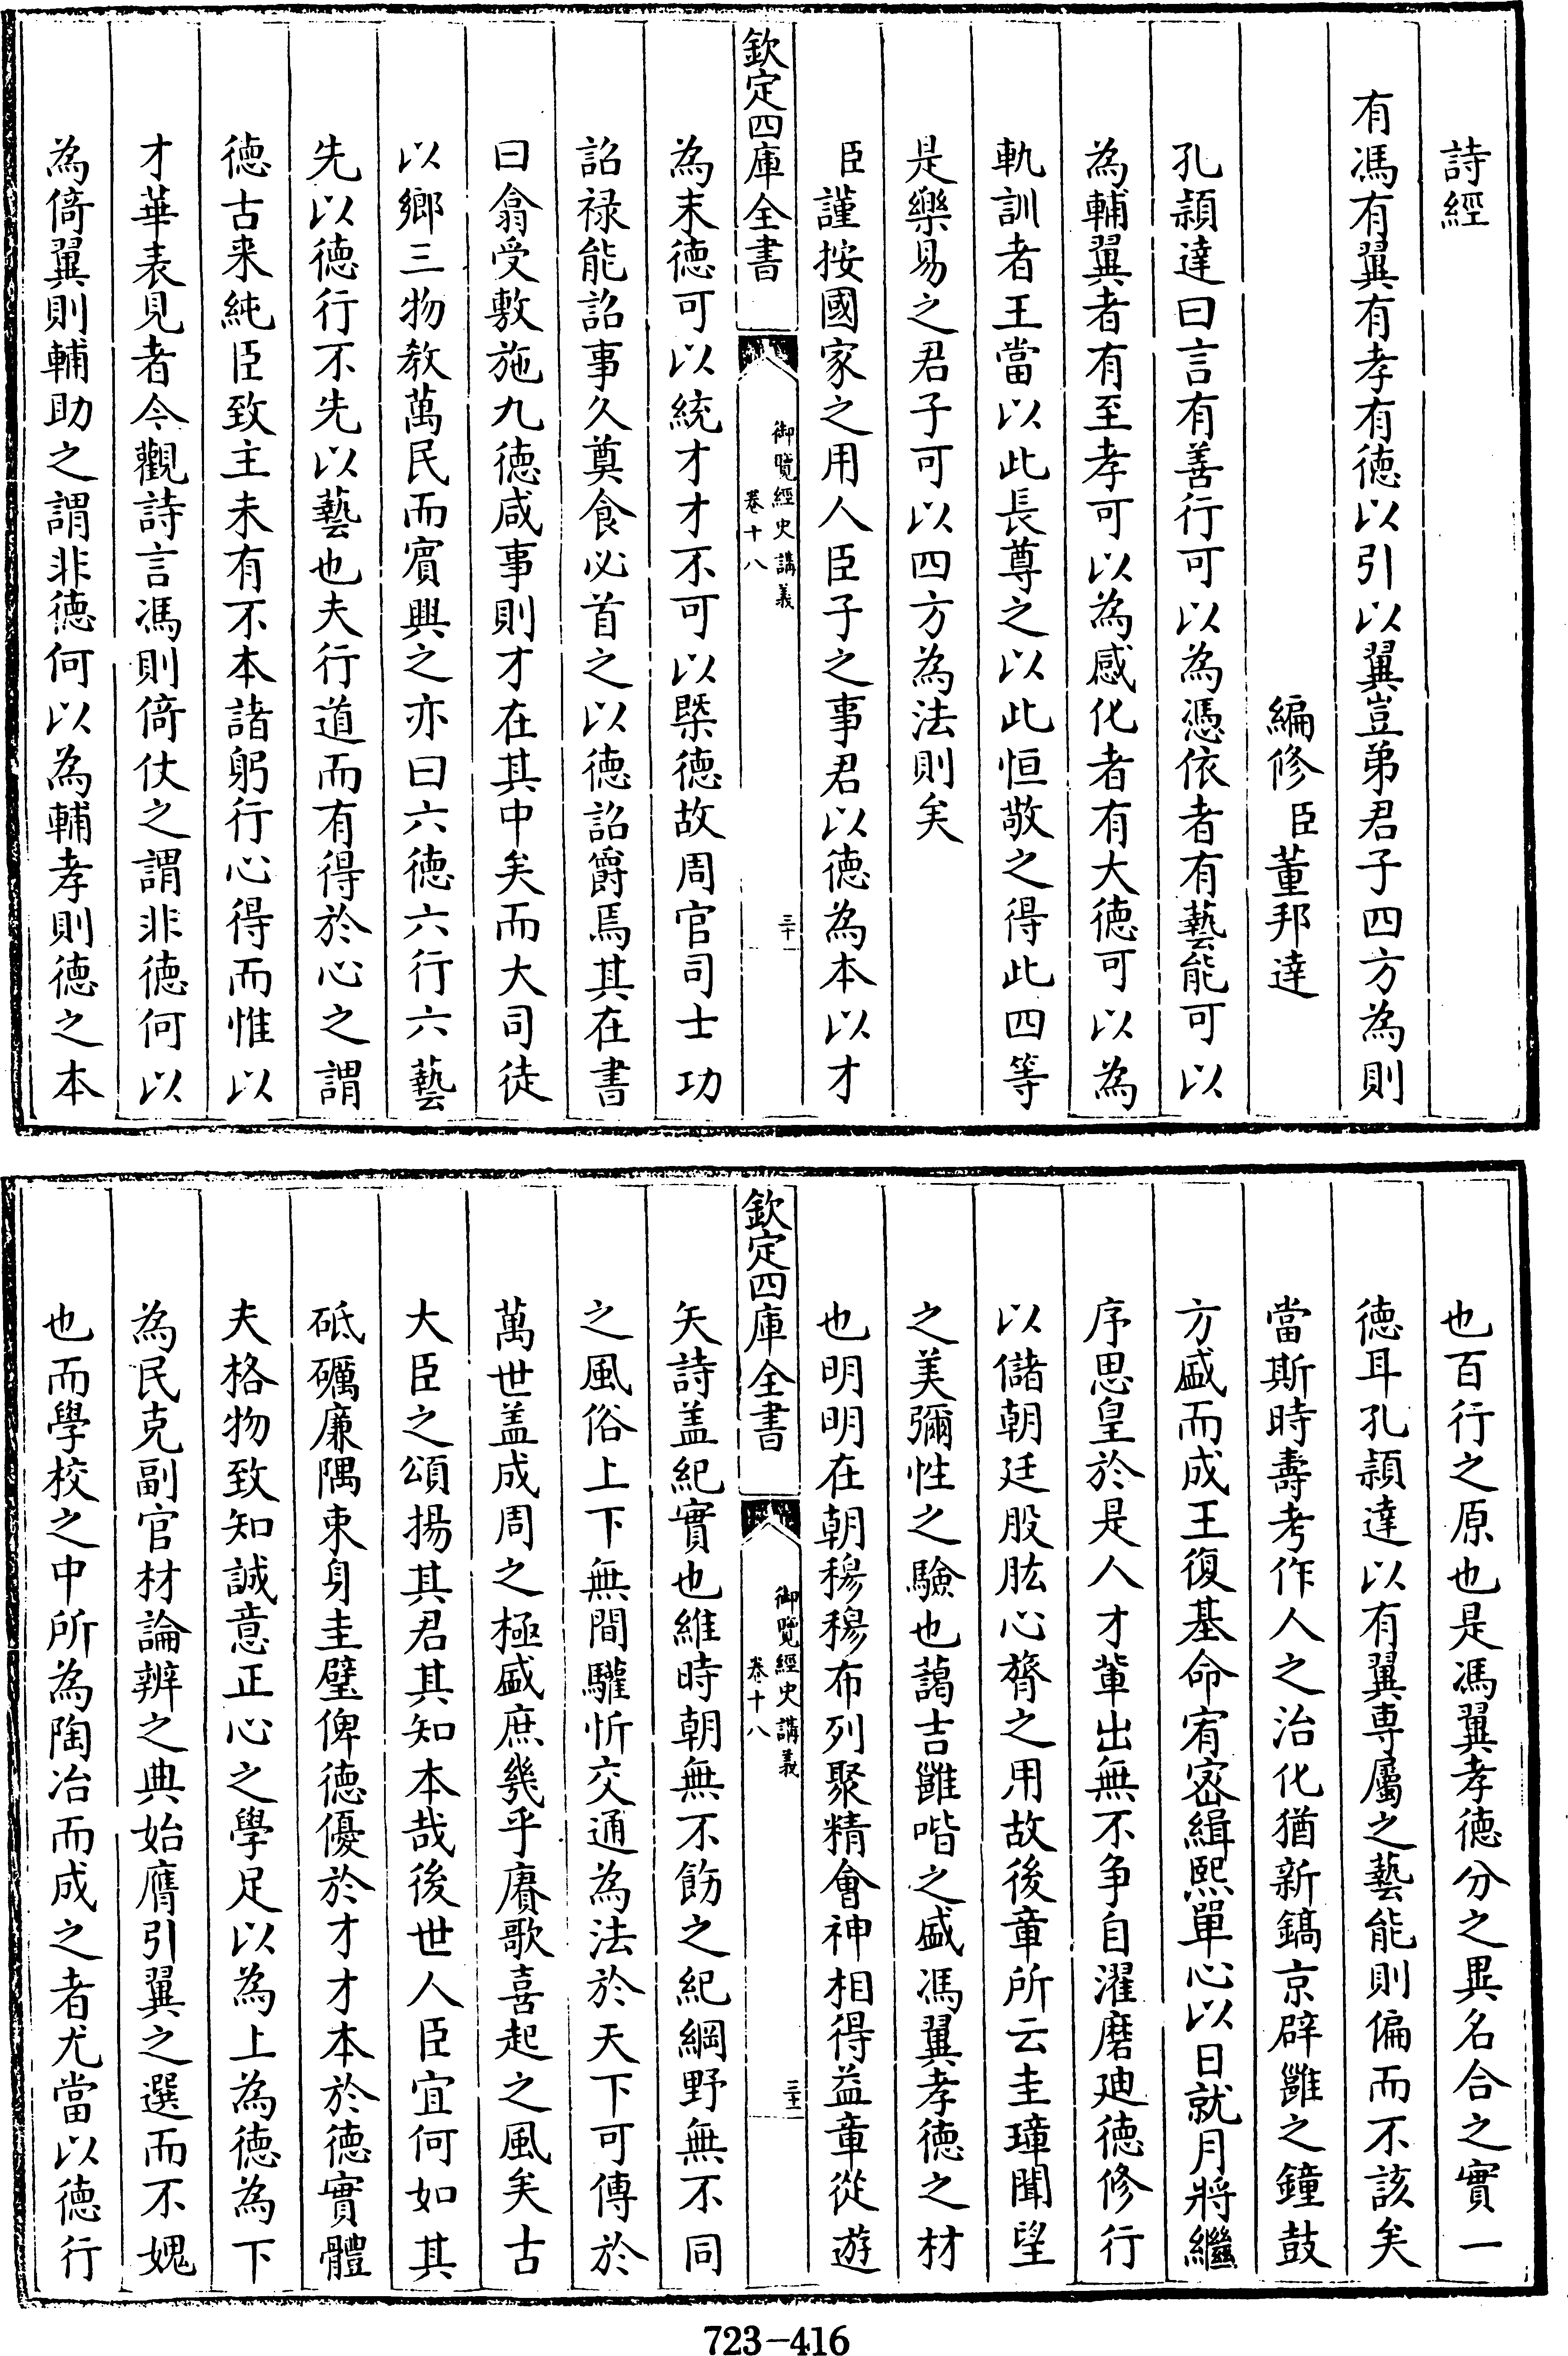 詩經
有馮有翼有孝有德以引以翼豈弟君子四方為則
編修臣董邦達
孔穎達曰言有善行可以為憑依者有藝能可以
為輔翼者有至孝可以為感化者有大德可以為
軌訓者王當以此長尊之以此恒敬之得此四等
是樂易之君子可以四方為法則矣
臣謹按國家之用人臣子之事君以德為本以才
欽定四庫全書
御覽經史講義
卷十八
三十
為末德可以統才才不可以槩德故周官司士功
詔禄能詔事久奠食必首之以德詔爵焉其在書
曰翕受敷施九德咸事則才在其中矣而大司徒
以鄉三物教萬民而賓興之亦曰六德六行六藝
先以德行不先以藝也夫行道而有得於心之謂
德古来純臣致主未有不本諸躬行心得而惟以
才華表見者今觀詩言馮則倚仗之謂非德何以
為倚翼則輔助之謂非德何以為輔孝則德之本
也百行之原也是馮翼孝德分之異名合之實一
德耳孔穎達以有翼専屬之藝能則偏而不該矣
當斯時壽考作人之治化猶新鎬京辟雝之鐘鼓
方盛而成王復基命宥宻緝熙單心以日就月將繼
序思皇於是人才輩出無不争自濯磨廸德修行
以儲朝廷股肱心膂之用故後章所云圭璋聞望
之美彌性之驗也藹吉雝喈之盛馮翼孝德之材
也明明在朝穆穆布列聚精會神相得益章從遊
欽定四庫全書
御覽經史講義
卷十八
三十一
矢詩盖紀實也維時朝無不飭之紀綱野無不同
之風俗上下無間驩忻交通為法於天下可傳於
萬世盖成周之極盛庶幾乎賡歌喜起之風矣古
大臣之頌揚其君其知本哉後世人臣宜何如其
砥礪廉隅東身圭璧俾德優於才才本於德實體
夫格物致知誠意正心之學足以為上為德為下
為民克副官材論辨之典始膺引翼之選而不媿
也而學校之中所為陶冶而成之者尤當以德行
723-416